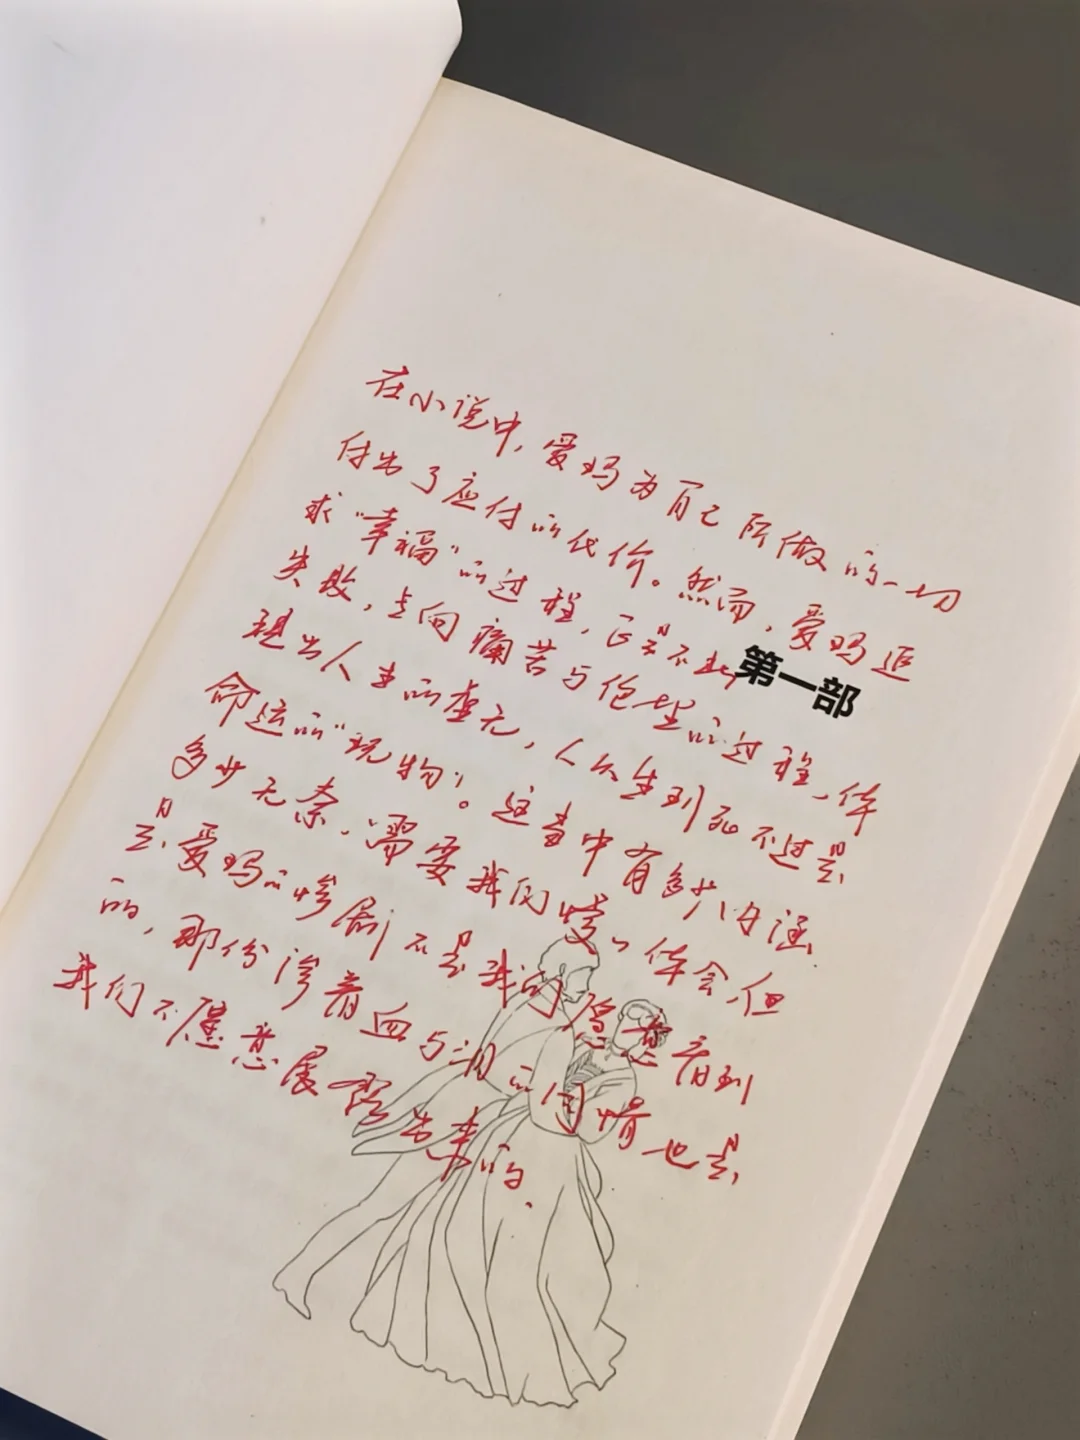 在小说中，爱玛为自己所做的一切
付出了应付的代价。然而，爱玛追
求“幸福”的过程，正是不断
第一部
失败，走向痛苦与绝望的过程，体
现出人生的虚无，人从生到死不过是
命运的“玩物”。这当中有多少内涵
多少无奈，需要我们慢慢体会，但
是，爱玛的惨剧不是我们愿意看到
的，那份渗着血与泪的同情也是
我们不愿意展露出来的。